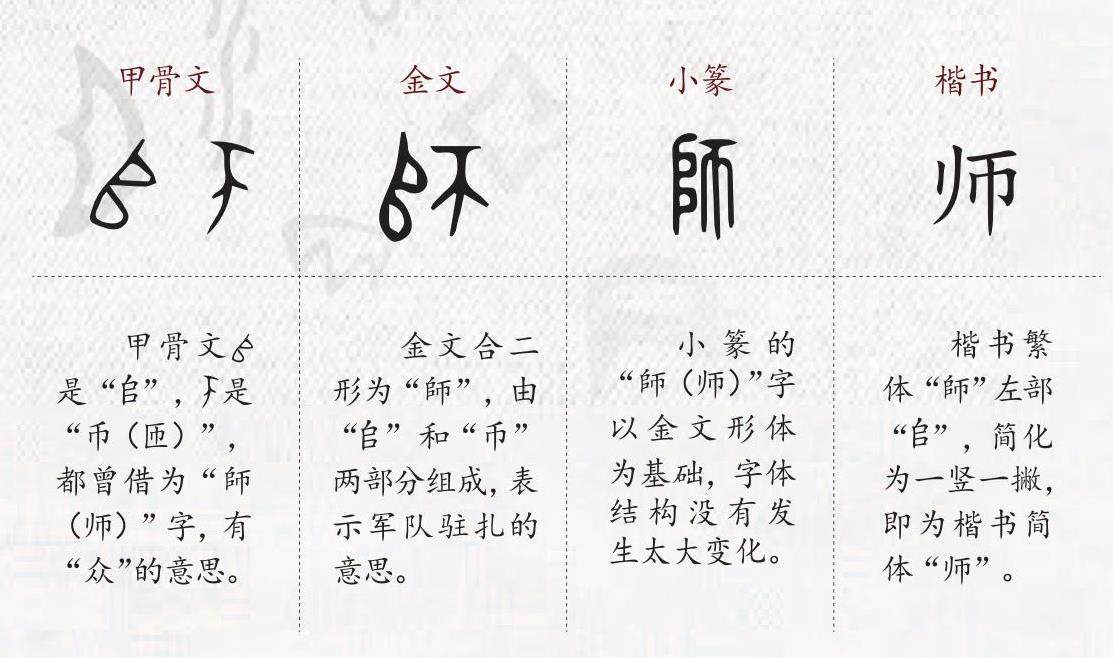 甲骨文
金文
小篆
楷书
師
师
甲骨文
是“𠂤”，是
“帀（匝）”，
都曾借为“師
（师）”字，有
“众”的意思。
金文合二
形为“師”，由
“𠂤”和“帀”
两部分组成，表
示军队驻扎的
意思。
小篆的
“師（师）”字
以金文形体
为基础，字体
结构没有发
生太大变化。
楷书繁
体“師”左部
“𠂤”，简化
为一竖一撇，
即为楷书简
体“师”。